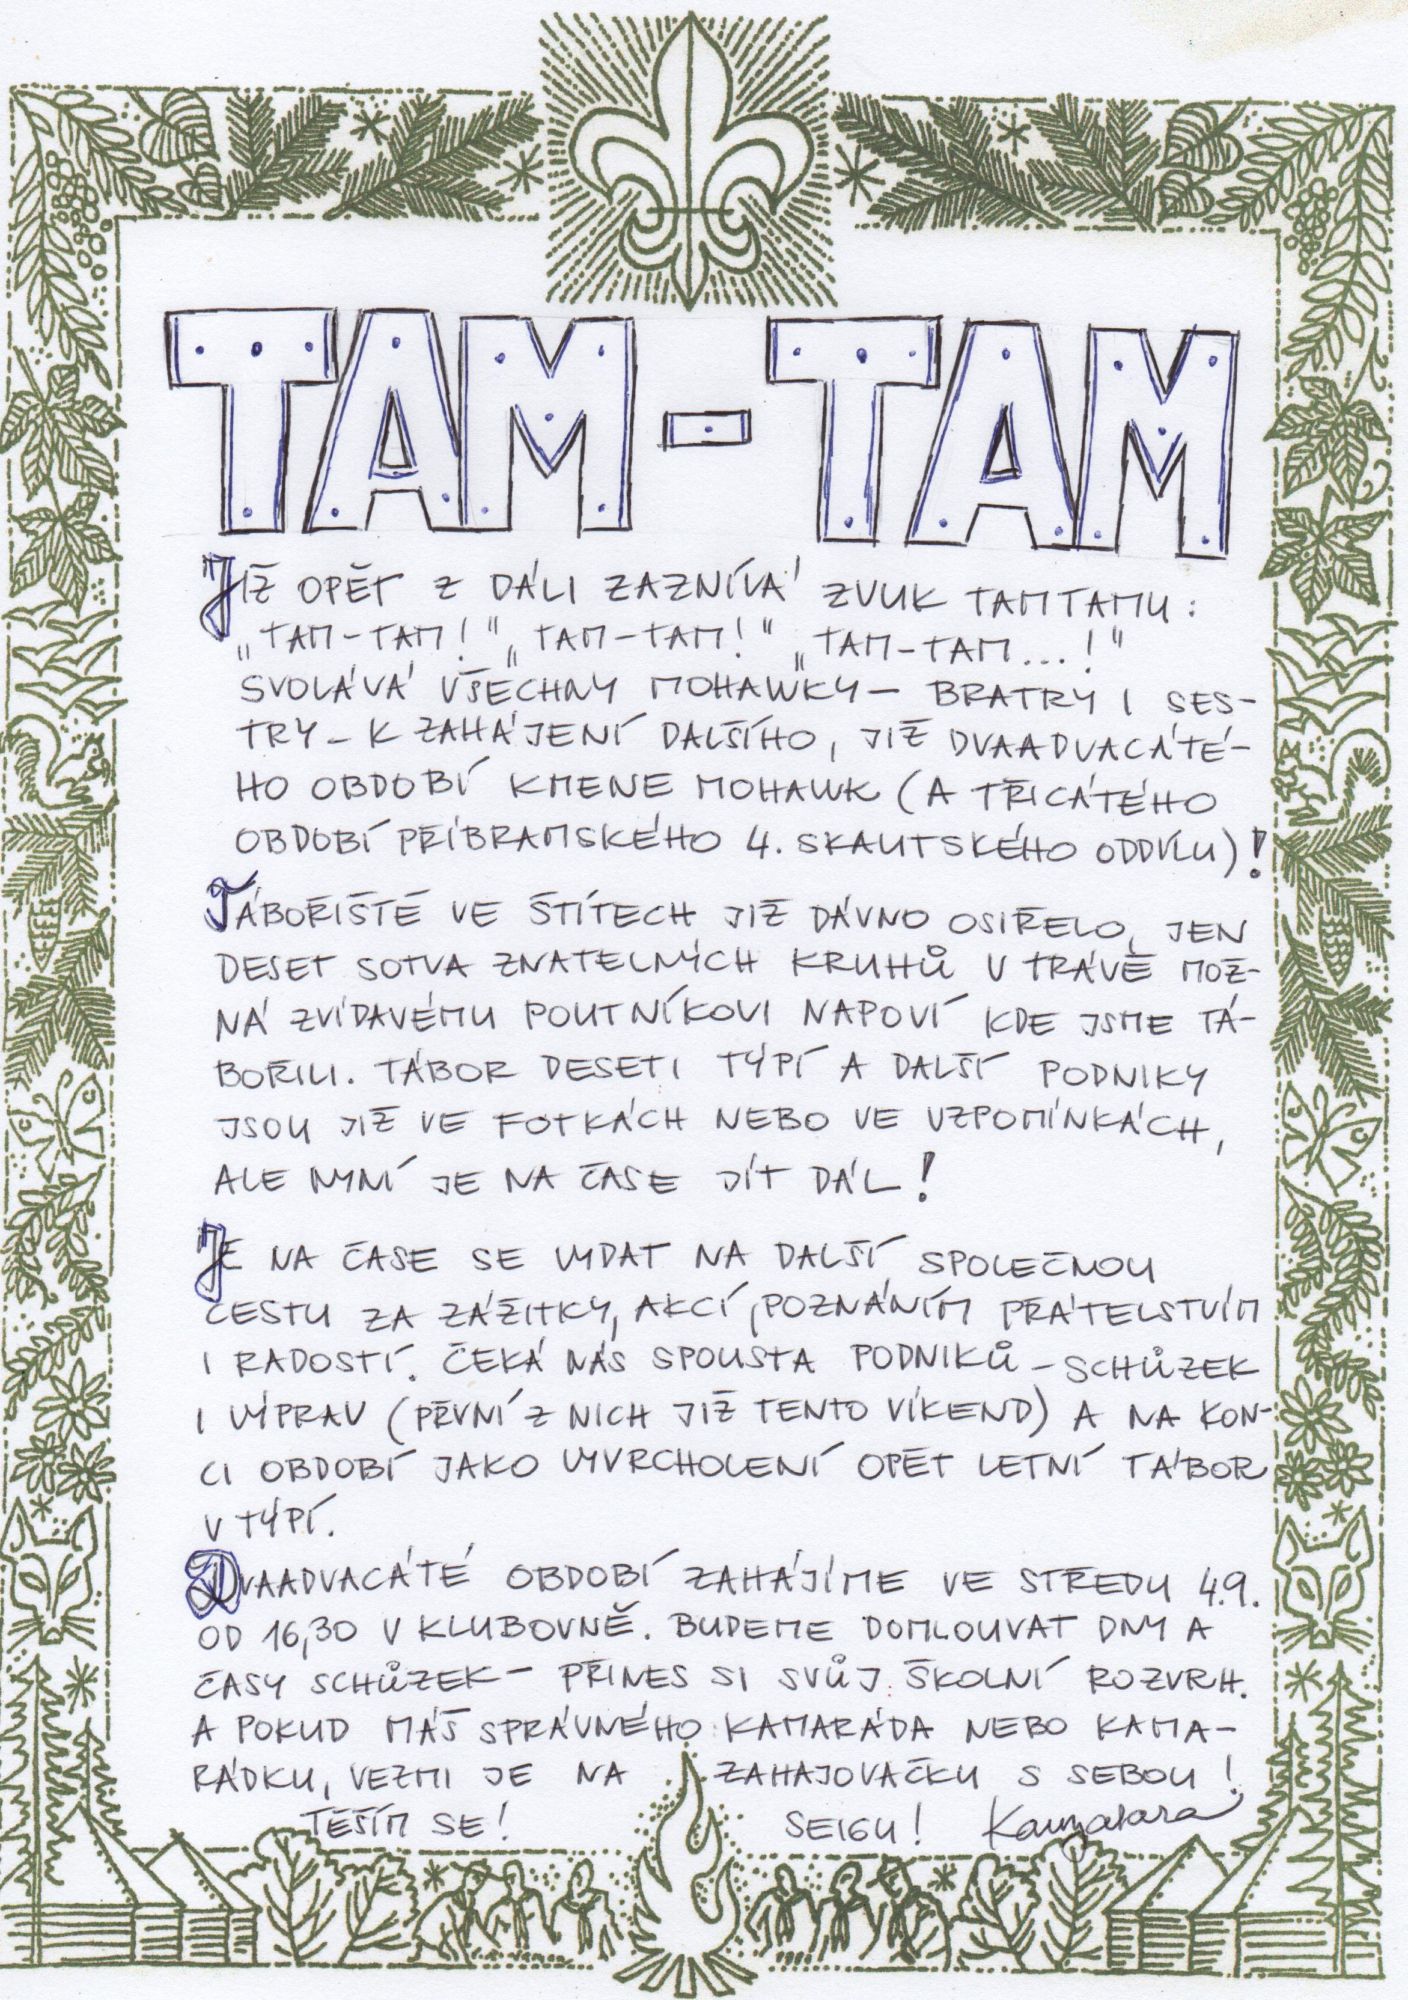 TAM-TAM
JIŽ OPĚT Z DÁLI ZAZNÍVÁ ZVUK TAMTAMU:
„TAM-TAM!“ „TAM-TAM!“ „TAM-TAM...!“
SVOLÁVÁ VŠECHNY MOHAWKY – BRATRY I SES-
TRY – K ZAHÁJENÍ DALŠÍHO, JIŽ DVAADVACÁTÉ-
HO OBDOBÍ KMENE MOHAWK (A TŘICÁTÉHO
OBDOBÍ PŘÍBRAMSKÉHO 4. SKAUTSKÉHO ODDÍLU)!
TÁBOŘIŠTĚ VE ŠTÍTECH JIŽ DÁVNO OSIŘELO, JEN
DESET SOTVA ZNATELNÝCH KRUHŮ V TRÁVĚ MOŽ-
NÁ ZVÍDAVÉMU POUTNÍKOVI NAPOVÍ KDE JSME TÁ-
BOŘILI. TÁBOR DESETI TÝPÍ A DALŠÍ PODNIKY
JSOU JIŽ VE FOTKÁCH NEBO VE VZPOMÍNKÁCH,
ALE NYNÍ JE NA ČASE JÍT DÁL!
JE NA ČASE SE VYDAT NA DALŠÍ SPOLEČNOU
CESTU ZA ZÁŽITKY, AKCÍ, POZNÁNÍM PŘÁTELSTVÍM
I RADOSTÍ. ČEKÁ NÁS SPOUSTA PODNIKŮ – SCHŮZEK
I VÝPRAV (PRVNÍ Z NICH JIŽ TENTO VÍKEND) A NA KON-
CI OBDOBÍ JAKO VYVRCHOLENÍ OPĚT LETNÍ TÁBOR
V TÝPÍ.
DVAADVACÁTÉ OBDOBÍ ZAHÁJÍME VE STŘEDU 4.9.
OD 16,30 V KLUBOVNĚ. BUDEME DOMLOUVAT DNY A
ČASY SCHŮZEK – PŘINES SI SVŮJ ŠKOLNÍ ROZVRH.
A POKUD MÁŠ SPRÁVNÉHO KAMARÁDA NEBO KAMA-
RÁDKU, VEZMI JE NA ZAHAJOVAČKU S SEBOU!
TĚŠÍM SE! SEIGU!